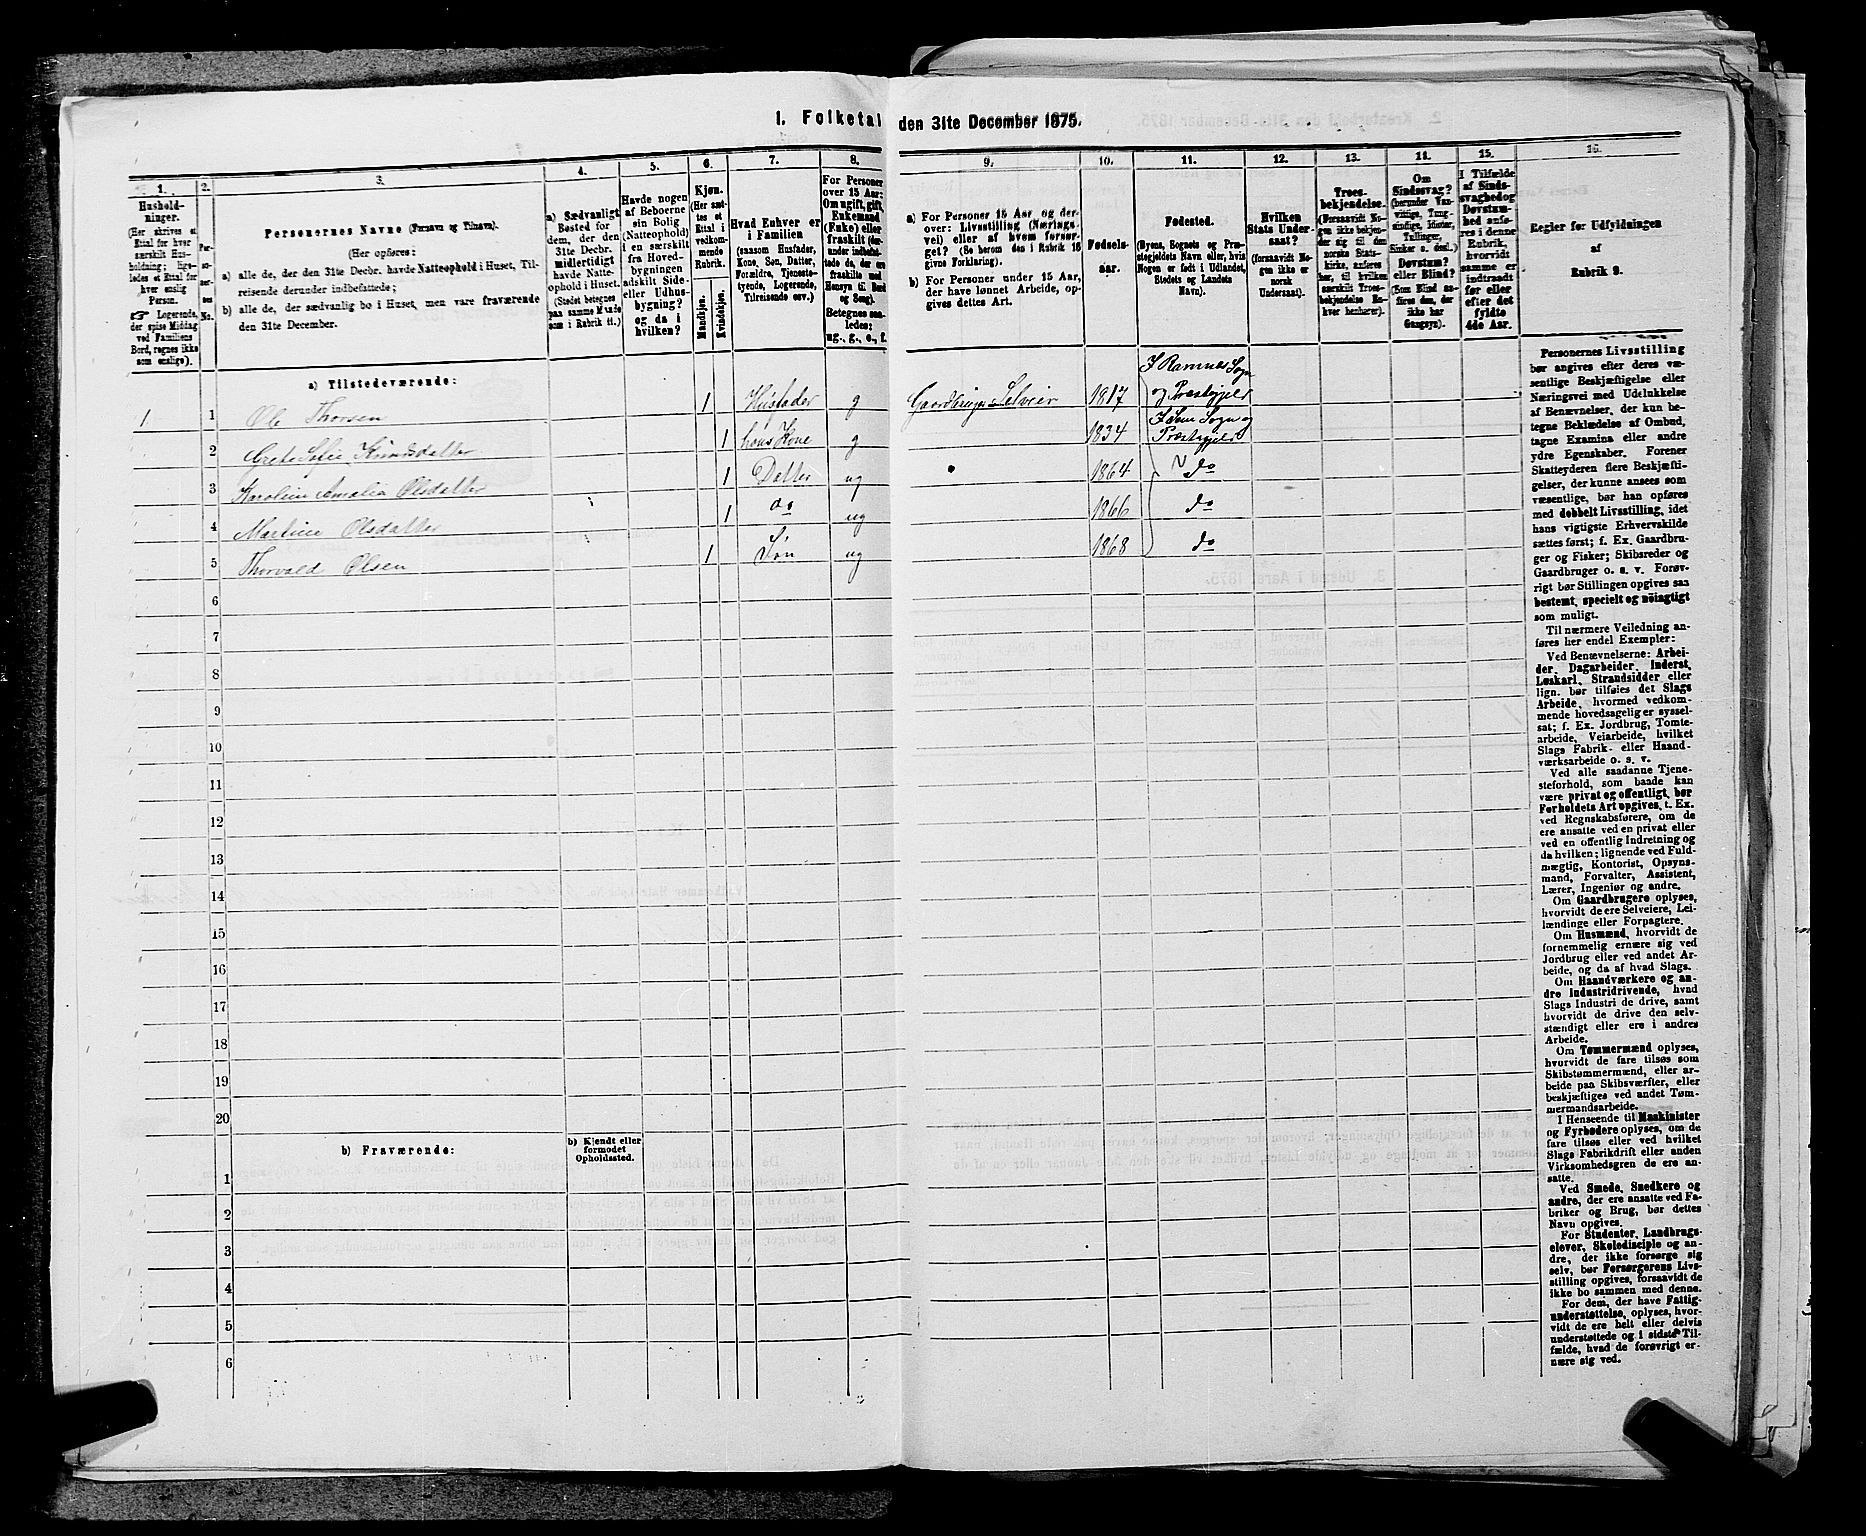 I. Folketal den 31te December 1875.
1.
Hushold-
ninger.
(Her skrives et
Ettal for hver
særskilt Hus-
holdning; lige-
ledes et Ettal for
hver enslig
Person.
Logerende,
der spise Middag
ved Familiens
Bord, regnes ikke
som enslige).
2.
Per-
so-
ner-
nes
No.
3.
Personernes Navne (Fornavn og Tilnavn).
(Her opføres:
a) alle de, der den 31te Decbr. havde Natteophold i Huset, Til-
reisende derunder indbefattede;
b) alle de, der sædvanlig bo i Huset, men vare fraværende
den 31te December.
4.
a) Sædvanligt
Bosted for
dem, der den
31te Decbr.
midlertidigt
havde Natte-
ophold i Huset.
(Stedet betegnes
paa samme Maade
som i Rubrik 11.)
5.
Havde nogen
af Beboerne
sin Bolig
(Natteophold)
i en særskilt
fra Hoved-
bygningen
adskilt Side-
eller Udhus-
bygning?
og da i
hvilken?
6.
Kjøn.
(Her sæt-
tes et
Ettal i
vedkom-
mende
Rubrik.
Mandkjøn.
Kvindekjøn.
7.
Hvad Enhver er
i Familien
(saasom Husfader,
Kone, Søn, Datter,
Forældre, Tjeneste-
tyende, Logerende,
Tilreisende osv.)
8.
For Personer
over 15 Aar:
Om ugift, gift,
Enkemand
(Enke) eller
fraskilt (der-
under indbefat-
tede de, der ere
fraskilte med
Hensyn til Bord
og Seng).
Betegnes saa-
ledes:
ug., g., e., f.
9.
a) For Personer 15 Aar og der-
over: Livsstilling (Nærings-
vei) eller af hvem forsør-
get? (Se herom den i Rubrik 16
givne Forklaring).
b) For Personer under 15 Aar,
der have lønnet Arbeide, op-
gives dettes Art.
10.
Fødsels-
aar.
11.
Fødested.
(Byens, Sognets og Præ-
stegjeldets Navn eller, hvis
Nogen er født i Udlandet,
Stedets og Landets
Navn).
12.
Hvilken
Stats Under-
saat?
(forsaavidt No-
gen ikke er
norsk
Undersaat).
13.
Troes-
bekjendelse.
(Forsaavidt No-
gen ikke bekjen-
der sig til den
norske Stats-
kirke, anføres
her, til hvilken
særskilt Troes-
bekjendelse En-
hver henhører).
14.
Om
Sindssvag?
(herunder Van-
vittige, Tung-
sindige, Idioter,
Tullinger,
Sinker o. desl.).
Døvstum?
eller Blind?
(Som Blind an-
føres den, der
ikke har
Gangsyn).
15.
I Tilfælde
af Sinds-
svaghed og
Døvstum-
hed anfø-
res i denne
Rubrik,
hvorvidt
samme er
indtraadt
før eller
efter det
fyldte
4de Aar.
16.
Regler for Udfyldningen
af
Rubrik 9.
a) Tilstedeværende:
1 1 Ole Thorsen 1 Husfader g Gaardbruger Selveier 1817 I Ramnes Sogn og Præstegjeld
2 Grete Sofie Knudsdatter 1 hans Kone g 1834 I Sem Sogn og Præstegjeld
3 Karoline Amalia Olsdatter 1 Datter ug 1864 do
4 Martine Olsdatter 1 do ug 1866 do
5 Thorvald Olsen 1 Søn ug 1868 do
6
7
8
9
10
11
12
13
14
15
16
17
18
19
20
b) Fraværende:
b) Kjendt eller
formodet
Opholdssted.
1
2
3
4
5
6
Personernes Livsstilling
bør angives efter deres væ-
sentlige Beskjæftigelse eller
Næringsvei med Udelukkelse
af Benævnelser, der kun be-
tegne Beklædelse af Ombud,
tagne Examina eller andre
ydre Egenskaber. Forener
Skatteyderen flere Beskjæfti-
gelser, der kunne ansees som
væsentlige, bør han opføres
med dobbelt Livsstilling, idet
hans vigtigste Erhvervskilde
sættes først; f. Ex. Gaardbru-
ger og Fisker; Skibsreder og
Gaardbruger o. s. v. Forøv-
rigt bør Stillingen opgives saa
bestemt, specielt og nöiagtigt
som muligt.
Til nærmere Veiledning an-
føres her endel Exempler:
Ved Benævnelserne: Arbei-
der, Dagarbeider, Inderst,
Løskarl, Strandsidder eller
lign. bør tilføies det Slags
Arbeide, hvormed vedkom-
mende hovedsagelig er syssel-
sat; f. Ex. Jordbrug, Tomte-
arbeide, Veiarbeide, hvilket
Slags Fabrik- eller Haand-
værksarbeide o. s. v.
Ved alle saadanne Tjene-
steforhold, som baade kan
være privat og offentligt, bør
Forholdets Art opgives, t. Ex.
ved Regnskabsførere, om de
ere ansatte ved en privat eller
ved en offentlig Indretning og
da hvilken; lignende ved Fuld-
mægtig, Kontorist, Opsyns-
mand, Forvalter, Assistent,
Lærer, Ingeniør og andre.
Om Gaardbrugere oplyses,
hvorvidt de ere Selveiere, Lei-
lændinge eller Forpagtere.
Om Husmænd, hvorvidt de
fornemmelig ernære sig ved
Jordbrug eller ved andet Ar-
beide, og da af hvad Slags.
Om Haandværkere og an-
dre Industridrivende, hvad
Slags Industri de drive, samt
hvorvidt de drive den selv-
stændigt eller ere i andres
Arbeide.
Om Tømmermænd oplyses,
hvorvidt de fare tilsøs som
Skibstømmermænd, eller ar-
beide paa Skibsværfter, eller
beskjæftiges ved andet Tøm-
mermandsarbeide.
I Henseende til Maskinister
og Fyrbødere oplyses, om de
fare tilsøs eller ved hvilket
Slags Fabrikdrift eller anden
Virksomhedsgren de ere an-
satte.
Ved Smede, Snedkere og
andre, der ere ansatte ved Fa-
briker og Brug, bør dettes
Navn opgives.
For Studenter, Landbrugs-
elever, Skoledisciple og an-
dre, der ikke forsørge sig
selv, bør Forsørgerens Livs-
stilling opgives, forsaavidt de
ikke bo sammen med denne.
For dem, der have Fattig-
understøttelse, oplyses, hvor-
vidt de ere helt eller delvis
understøttede og i sidste Til-
fælde, hvad de forøvrigt er-
nære sig ved.